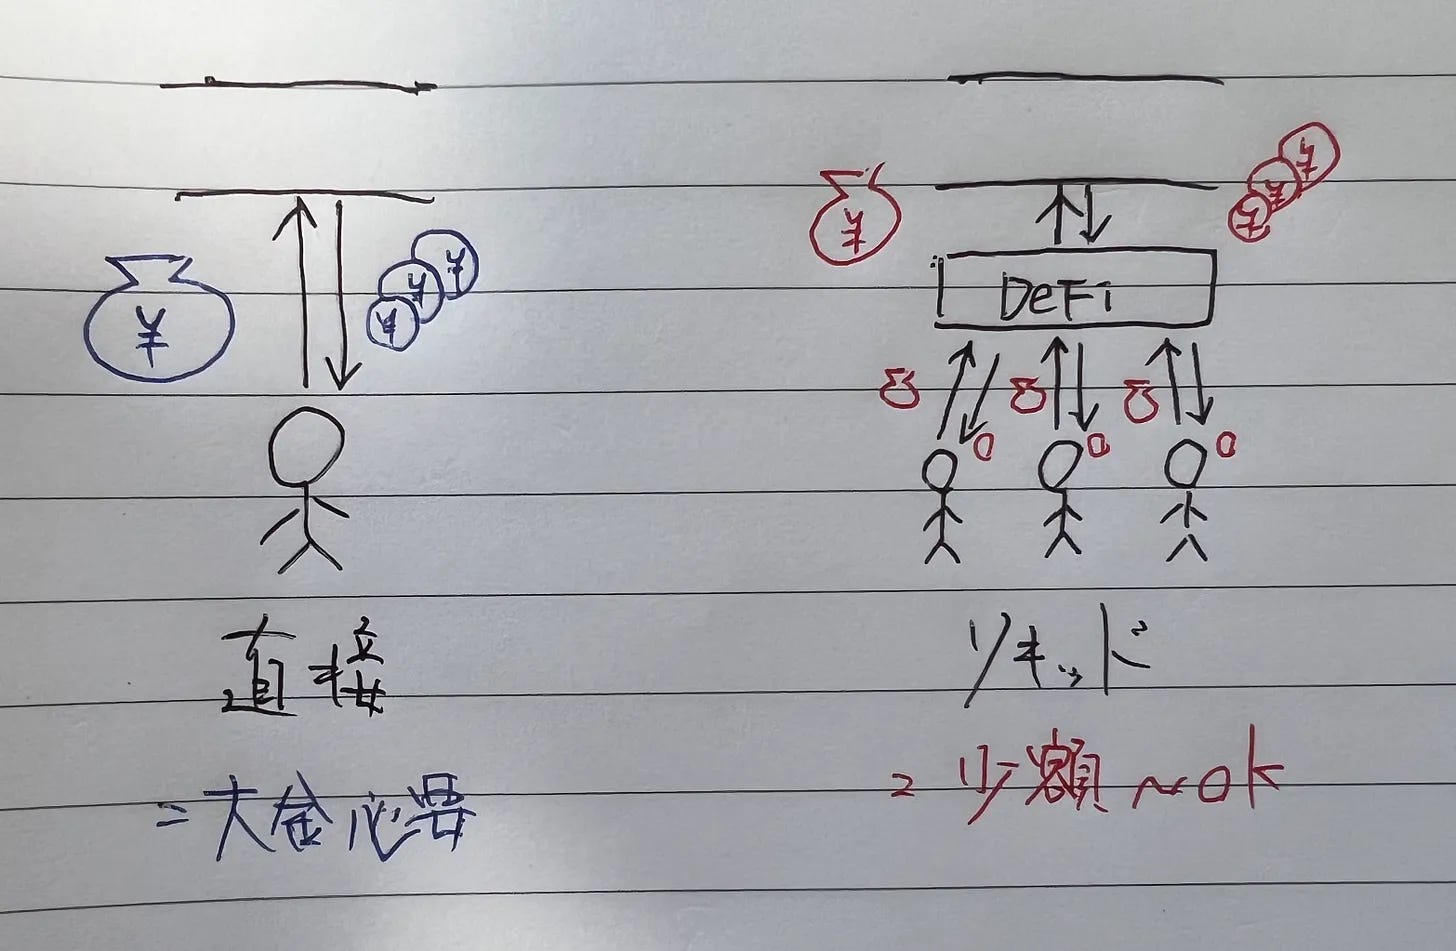 ¥
¥
¥
¥
直接
=大金必要
¥
¥
¥
¥
DeFi
リキッド
= 少額〜OK